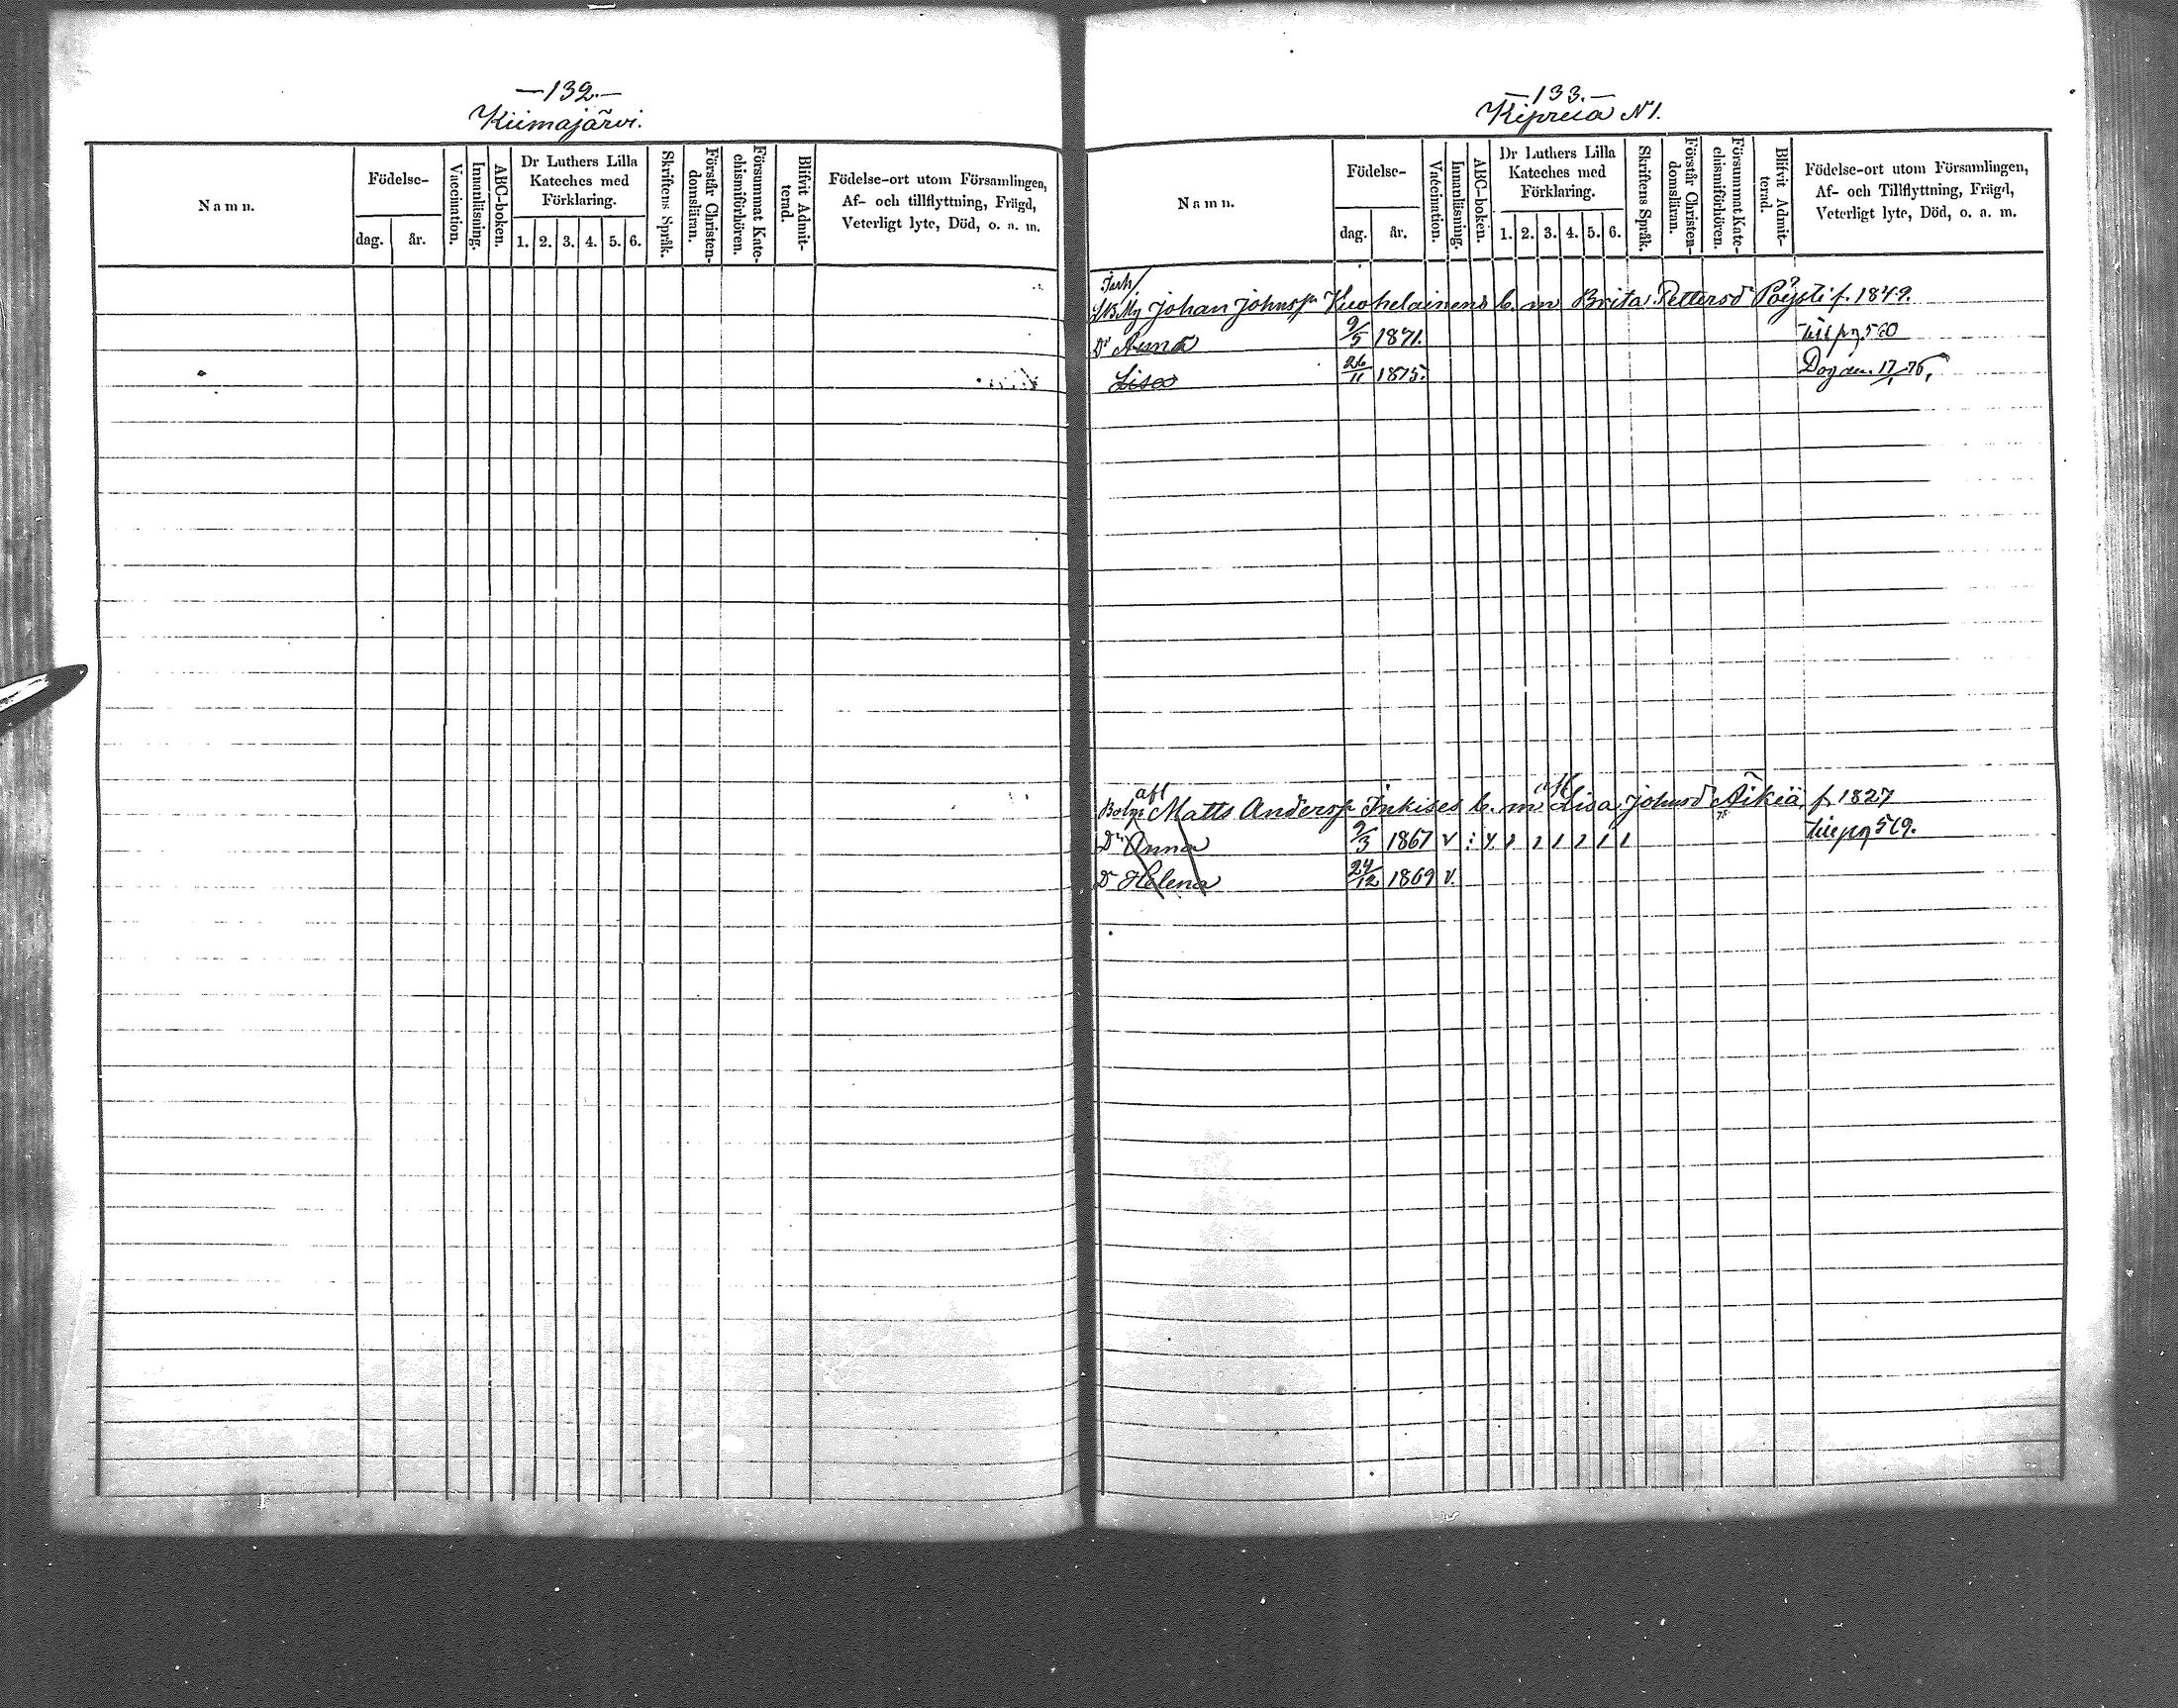 —132.—
Kiimajärvi.
Namn.
Födelse-
dag.
år.
Vaccination.
Innanläsning.
ABC-boken.
Dr Luthers Lilla
Kateches med
Förklaring.
1. 2. 3. 4. 5. 6.
Skriftens Språk.
Förstår Christen-
domsläran.
Försummat Kate-
chismiförhören.
Blifvit Admit-
terad.
Födelse-ort utom Församlingen,
Af- och tillflyttning, Frägd,
Veterligt lyte, Död, o. a. m.
—133.—
Kiprua N1.
Namn.
Födelse-
dag.
år.
Vaccination.
Innanläsning.
ABC-boken.
Dr Luthers Lilla
Kateches med
Förklaring.
1. 2. 3. 4. 5. 6.
Skriftens Språk.
Förstår Christen-
domsläran.
Försummat Kate-
chismiförhören.
Blifvit Admit-
terad.
Födelse-ort utom Församlingen,
Af- och Tillflyttning, Frägd,
Veterligt lyte, Död, o. a. m.
Johan Johnsp Kuohelainens b. m Brita Pettersd Pöysti f. 1849.
Dr Anna 9/5 1871. pg. 560
Lisa 26/11 1875. Dog den 17/1 76,
afl
Bolm Matts Andersp Inkises b. m afl Lisa Johnsd Äikiä f. 1827
Dr Anna 9/3 1867 v : y. 1 1 1 1 1 1 pg 569.
Dr Helena 24/12 1869 v.